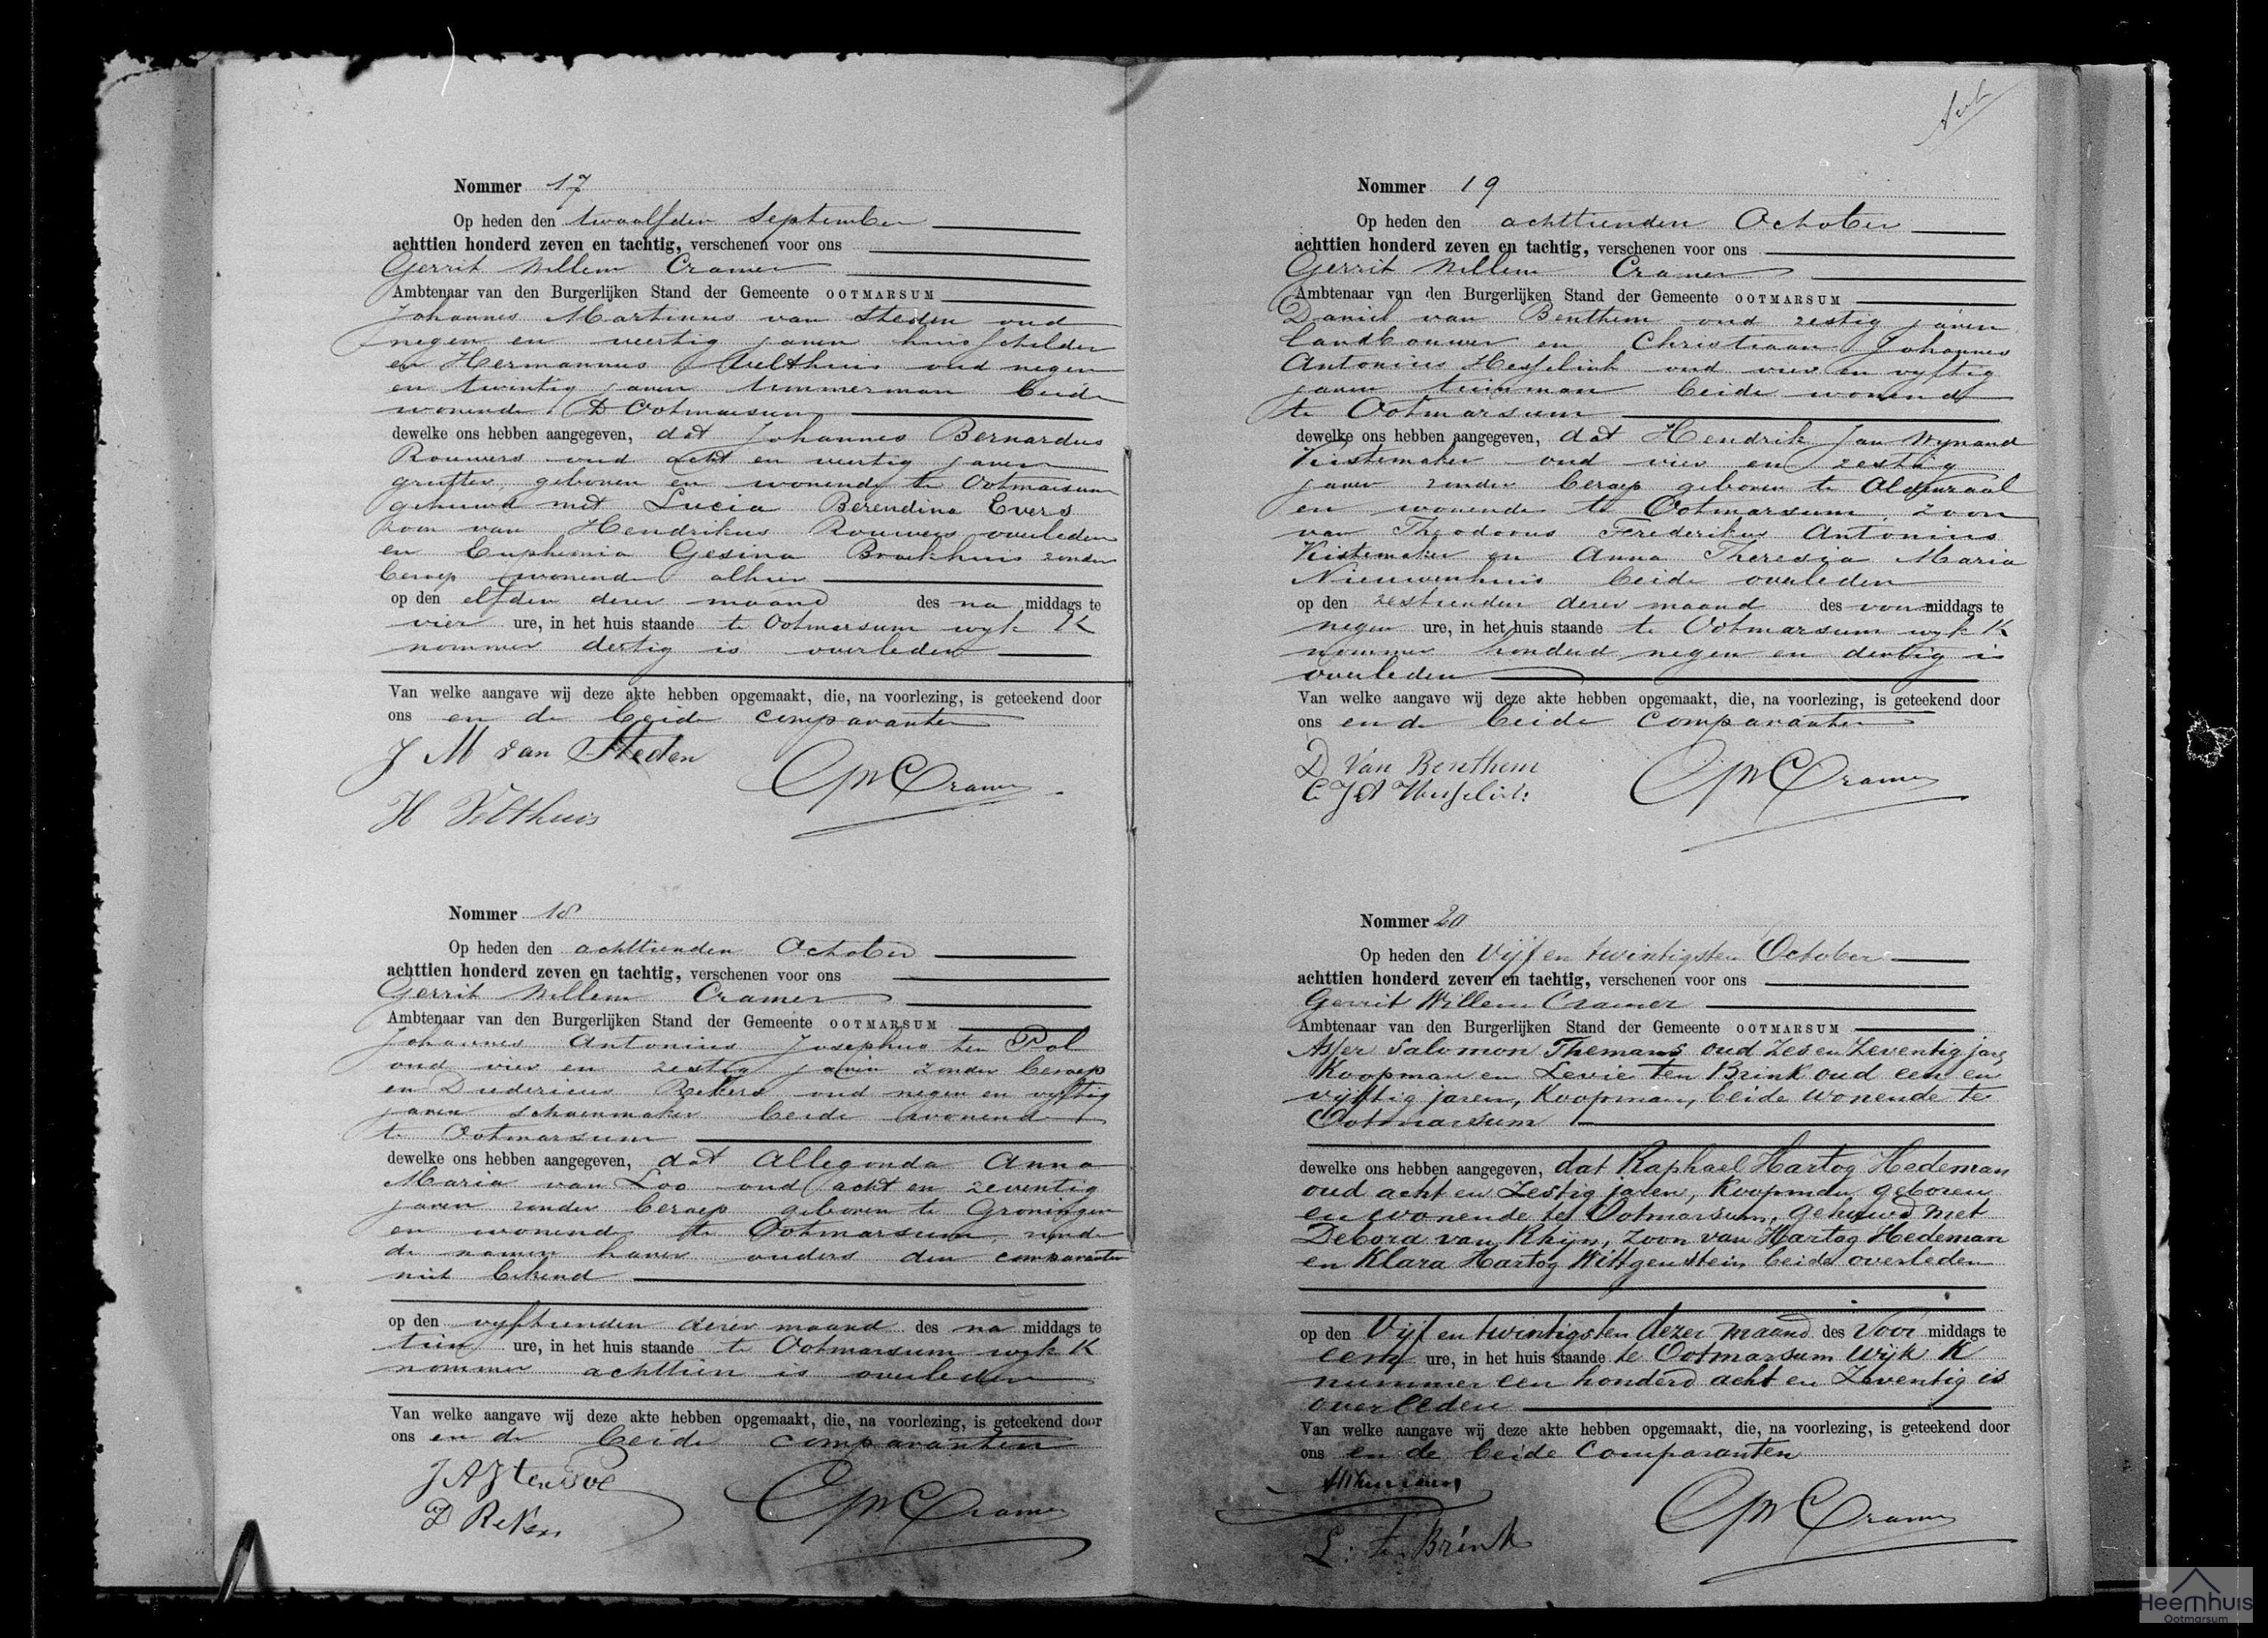 Nommer 17
Op heden den twaalfden September
achttien honderd zeven en tachtig, verschenen voor ons
Gerrit Willem Cramer
Ambtenaar van den Burgerlijken Stand der Gemeente OOTMARSUM
Johannes Martinus van Steden oud
negen en veertig jaren huisschilder
en Hermannus Velthuis oud negen
en twintig jaren timmerman beide
wonende te Ootmarsum
dewelke ons hebben aangegeven, dat Johannes Bernardus
Rouwers oud acht en veertig jaren
geboren en wonende te Ootmarsum
gehuwd met Lucia Berendina Evers
zoon van Hendrikus Rouwers overleden
en Euphemia Gesina Broekhuis zonder
beroep wonende alhier
op den elfden dezer maand des na middags te
vier ure, in het huis staande te Ootmarsum wyk K
nommer dertig is overleden
Van welke aangave wij deze akte hebben opgemaakt, die, na voorlezing, is geteekend door
ons en de beide comparanten
J M van Steden
GWCramer
H Velthuis
Nommer 18
Op heden den achttienden October
achttien honderd zeven en tachtig, verschenen voor ons
Gerrit Willem Cramer
Ambtenaar van den Burgerlijken Stand der Gemeente OOTMARSUM
Johannes Antonius Josephus ten Pol
oud vier en zestig jaren zonder beroep
en Diedericus Rekers oud negen en vyftig
jaren schoenmaker beide wonende
te Ootmarsum
dewelke ons hebben aangegeven, dat Allegonda Anna
Maria van Loo oud acht en zeventig
jaren zonder beroep geboren te Groningen
en wonende te Ootmarsum, zynde
de namen harer ouders den comparanten
niet bekend
op den vyftienden dezer maand des na middags te
tien ure, in het huis staande te Ootmarsum wyk K
nommer achttien is overleden
Van welke aangave wij deze akte hebben opgemaakt, die, na voorlezing, is geteekend door
ons en de beide comparanten
J A J ten Pol
GWCramer
D Rekers
Nommer 19
Op heden den achttienden October
achttien honderd zeven en tachtig, verschenen voor ons
Gerrit Willem Cramer
Ambtenaar van den Burgerlijken Stand der Gemeente OOTMARSUM
Daniel van Benthem oud zestig jaren
landbouwer en Christiaan Johannes
Antonius Hesselink oud vier en vyftig
jaren tuinman beide wonende
te Ootmarsum
dewelke ons hebben aangegeven, dat Hendrik Jan Wynand
Kistemaker oud vier en zestig
jaren zonder beroep geboren te Oldenzaal
en wonende te Ootmarsum, zoon
van Theodorus Frederikus Antonius
Kistemaker en Anna Theresia Maria
Nieuwenhuis beide overleden
op den zestienden dezer maand des voor middags te
negen ure, in het huis staande te Ootmarsum wyk K
nommer honderd negen en dertig is
overleden
Van welke aangave wij deze akte hebben opgemaakt, die, na voorlezing, is geteekend door
ons en de beide comparanten
D Van Benthem
GWCramer
C J A Hesselink
Nommer 20
Op heden den Vijf en twintigsten October
achttien honderd zeven en tachtig, verschenen voor ons
Gerrit Willem Cramer
Ambtenaar van den Burgerlijken Stand der Gemeente OOTMARSUM
Asser Salomon Themans oud Zes en Zeventig jaren
Koopman en Levie ten Brink oud een en
vijftig jaren, Koopman, beide wonende te
Ootmarsum
dewelke ons hebben aangegeven, dat Raphael Hartog Hedeman
oud acht en Zestig jaren, Koopman, geboren
en wonende te Ootmarsum, gehuwd met
Debora van Rhijn, zoon van Hartog Hedeman
en Klara Hartog Wittgenstein beide overleden
op den Vijf en twintigsten dezer maand des Voor middags te
een ure, in het huis staande te Ootmarsum Wijk K
nummer een honderd acht en Zeventig is
overleden
Van welke aangave wij deze akte hebben opgemaakt, die, na voorlezing, is geteekend door
ons en de beide Comparanten
GWCramer
L. ten Brink
Heemhuis
Ootmarsum